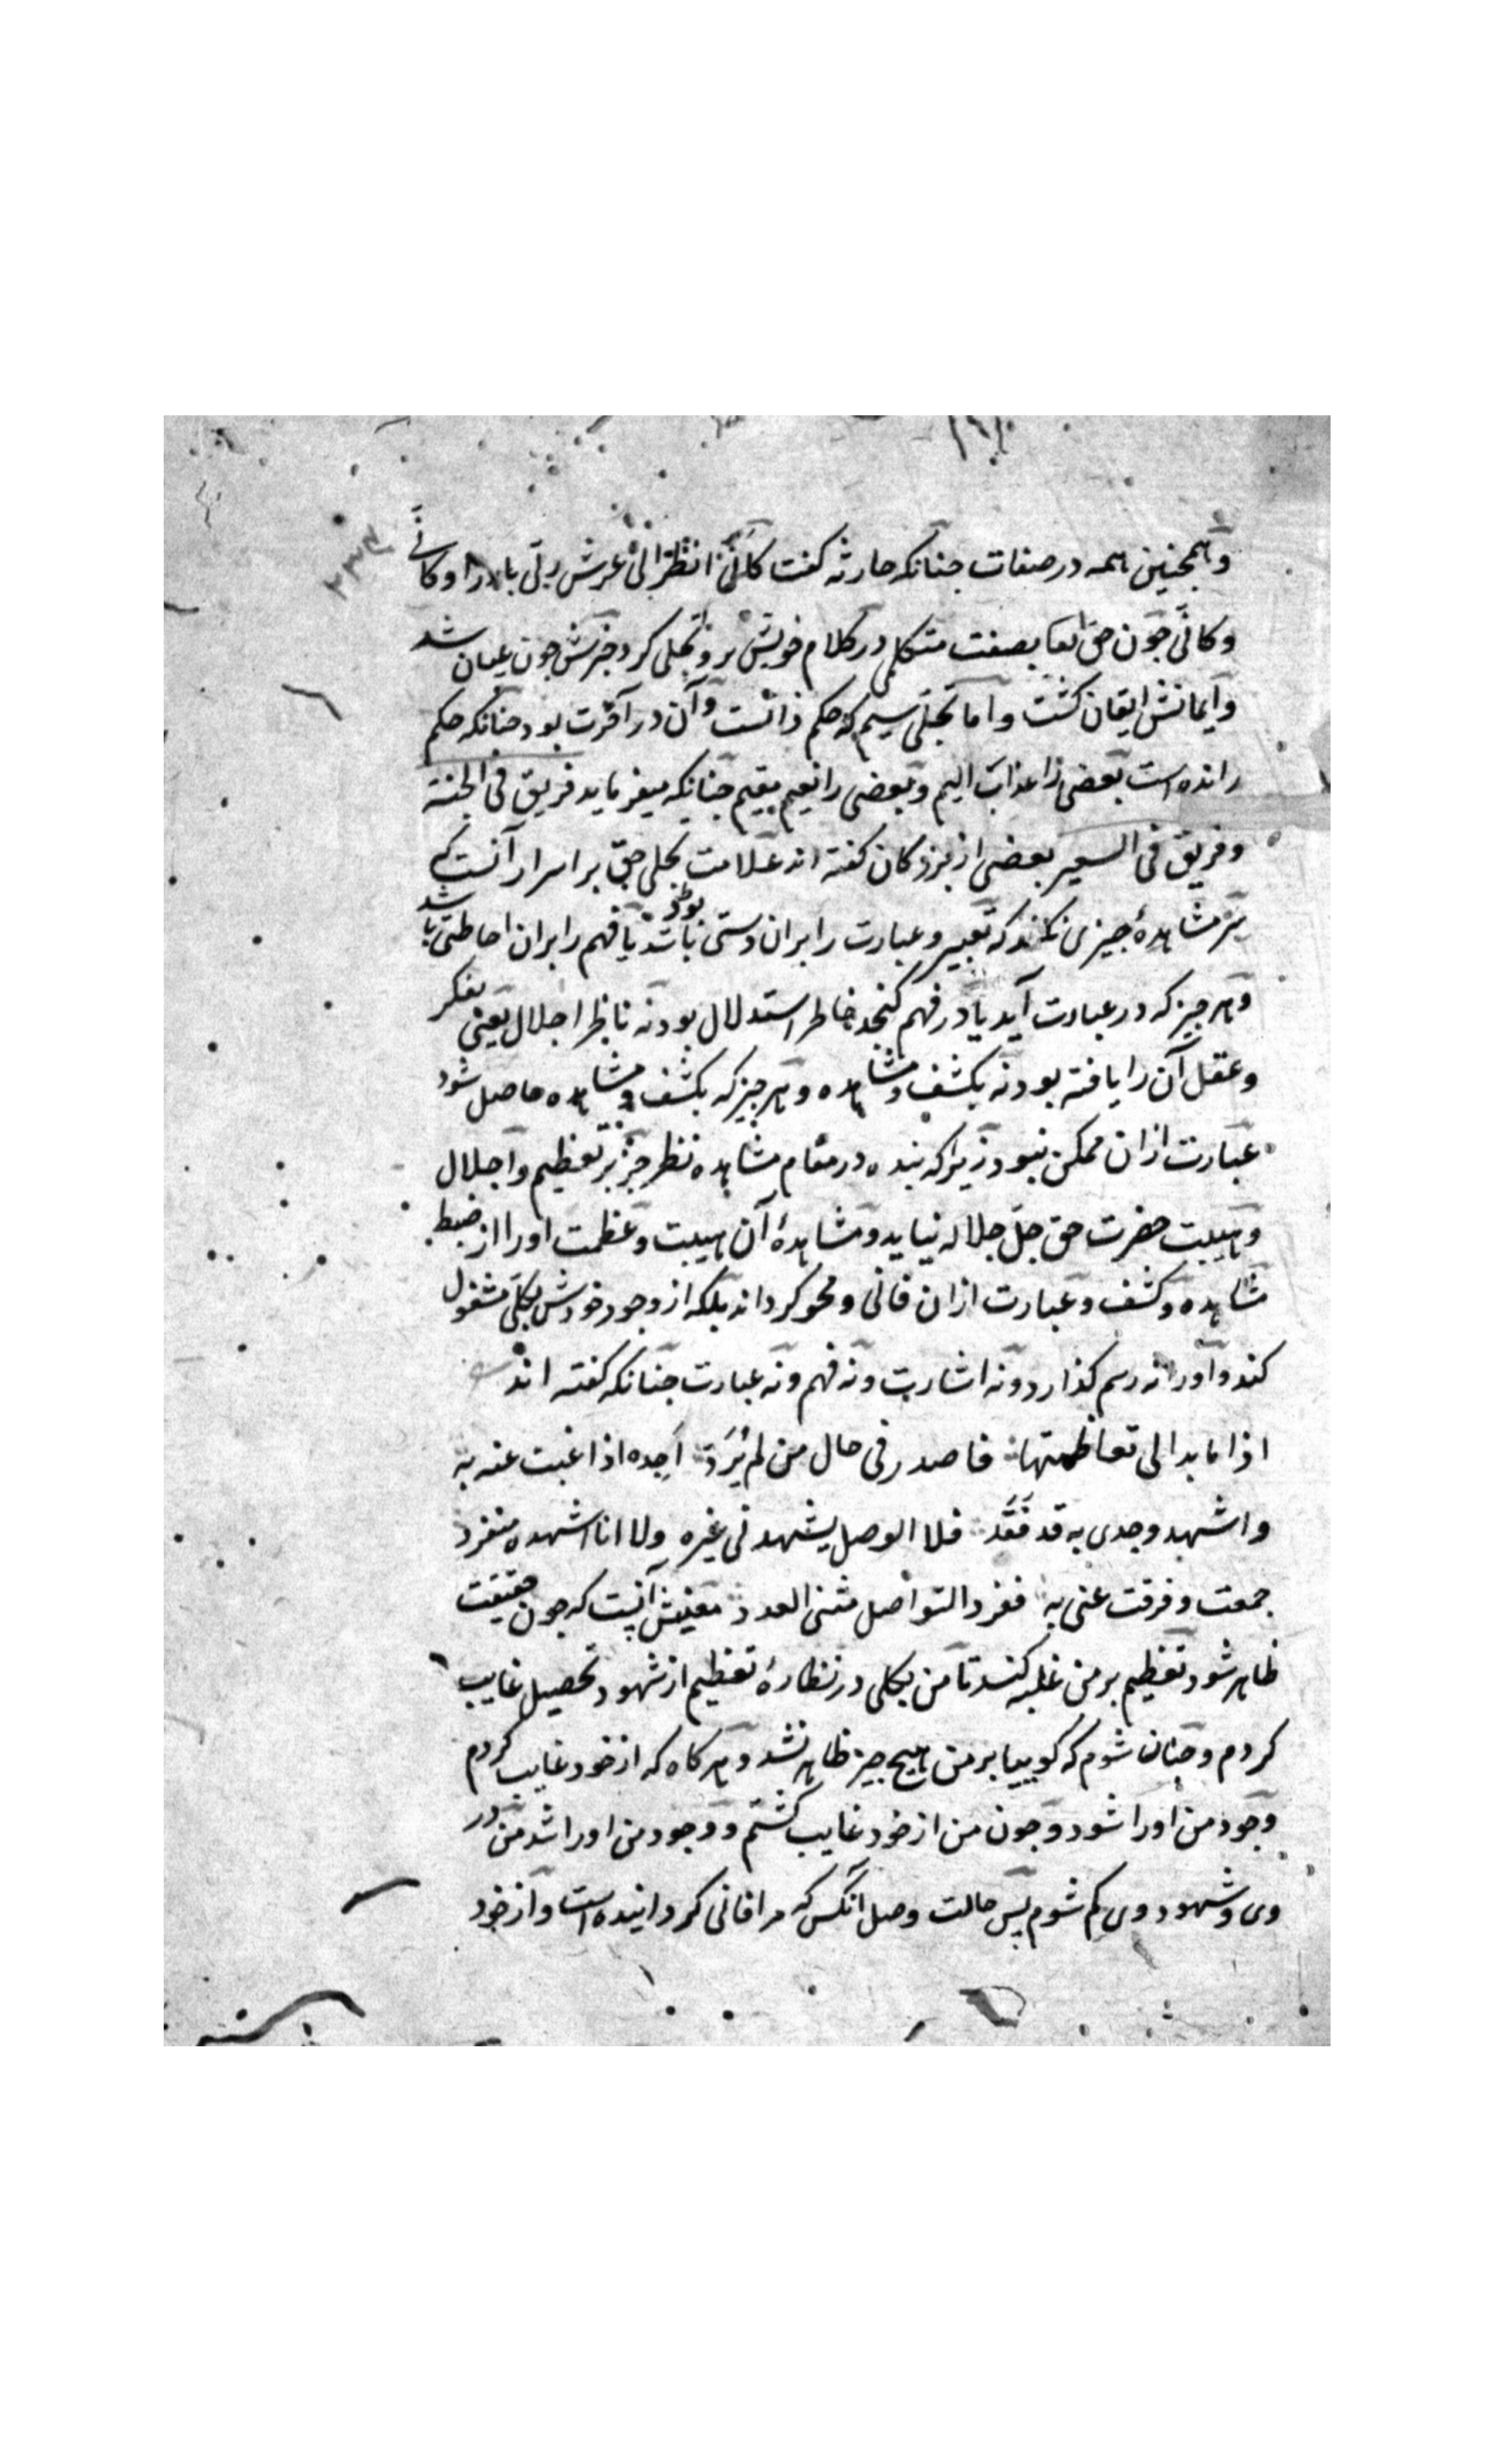 وهمجنین همه در صفات جنانکه حارثه کفت کأنّی انظر الی عرش ربی بارزا وکأنی
وکأنی جون حق تعا بصفت متکلمی در کلام خویش برو تجلی کرد خبرش جون عیان شد
وایمانش ایقان کشت واما تجلی سیم که حکم ذاتست وآن در آخرت بود جنانکه حکم
رانده است بعضی را عذاب الیم وبعضی را نعیم مقیم جنانکه میفرماید فریق فی الجنة
وفریق فی السعیر بعضی از بزرکان کفته اند علامت تجلی حق بر اسرار آنست که
سر مشاهدهٔ جیزی نکند که تعبیر وعبارت را بران دستی باشد یا فهم را بران احاطتی باشد
وهر جیز که در عبارت آید یا در فهم کنجد خاطر استدلال بود نه ناظر اجلال یعنی بفکر
وعقل آن را یافته بود نه بکشف ومشاهده وهر جیز که بکشف ومشاهده حاصل شود
عبارت ازان ممکن نبود زیرا که بنده در مقام مشاهده نظر جز بر تعظیم واجلال
وهیبت حضرت حق جل جلاله نیاید ومشاهدهٔ آن هیبت وعظمت اورا از ضبط
مشاهده وکشف وعبارت ازان فانی ومحو کرداند بلکه از وجود خودش بکلی مشغول
کند واورا نه رسم کذارد ونه اشارت ونه فهم ونه عبارت جنانکه کفته اند
اذا ما بدا لی تعاظمتها فاصدر فی حال من لم یُرَد اَجِده اذا غبت عنه به
واشهد وجدی به قد فَقَد فلا الوصل یشهدنی غیره ولا انا اشهده منفرد
جمعت وفرقت عنی به ففرد التواصل مثنی العدد معنیش آنست که جون حقیقت
ظاهر شود تعظیم بر من غلبه کند تا من بکلی در نظارهٔ تعظیم از شهود تحصیل غایب
کردم وجنان شوم که کوییا بر من هیج جیز ظاهر نشد وهر کاه که از خود غایب کردم
وجود من اورا شود وجون من از خود غایب کشتم ووجود من اورا شد من در
وی وشهود وی کم شوم پس حالت وصل آنکس که مرا فانی کردانیده است واز خود